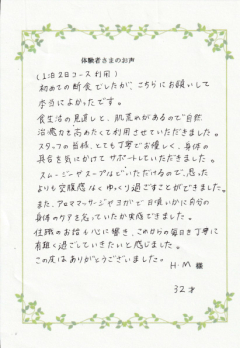 体験者さまのお声
(1泊2日コース利用)
初めての断食でしたが、こちらにお願いして
本当によかったです。
食生活の見直しと、肌荒れがあるので自然
治癒力を高めたくて利用させていただきました。
スタッフの皆様、とても丁寧でお優しく、身体の
具合を気にかけてサポートしていただきました。
スムージーやスープなどいただけるので、思った
よりも空腹感なくゆっくり過ごすことができました。
また、アロママッサージやヨガで日頃いかに自分の
身体のケアを怠っていたか実感できました。
住職のお話も心に響き、これからの毎日を丁寧に
有難く過ごしていきたいと感じました。
この度はありがとうございました。
H・M 様
32才